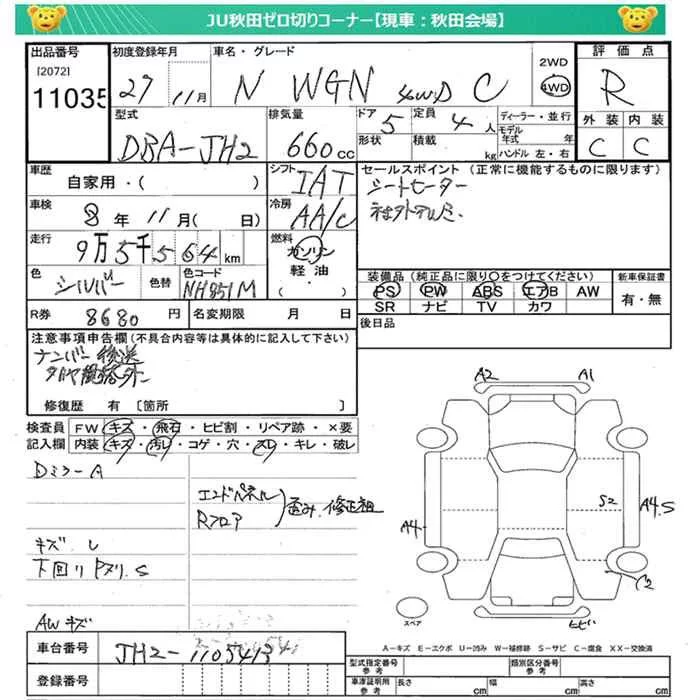 JU秋田ゼロ切りコーナー【現車：秋田会場】
出品番号
[2072]
11035
初度登録年月
27
11月
車名・グレード
N WGN 4WD C
2WD
4WD
評価点
R
外装 内装
C C
型式
DBA-JH2
排気量
660cc
ドア 5
形状
定員 4人
積載 kg
ディーラー・並行
モデル年式 年
ハンドル 左・右
車歴
自家用・( )
シフト
IAT
セールスポイント（正常に機能するものに限ります）
シートヒーター
社外アルミ.
車検
8年 11月( 日)
冷房
AA/C
走行
9万5千564km
燃料
ガソリン
軽油
・( )
色
シルバー
色替
色コード
NH851M
装備品（純正品に限り〇をつけてください）
PS PW ABS エアB AW
SR ナビ TV カワ
新車保証書
有・無
R券 8680円
名変期限 月 日
後日品
注意事項申告欄（不具合内容等は具体的に記入して下さい）
ナンバー後送
タイヤ規格外
修復歴 有 [箇所 ]
検査員記入欄
FW キズ・飛石・ヒビ割・リペア跡・×要
内装 キズ・汚レ・コゲ・穴・スレ・キレ・破レ
Dミラー A
エンドパネル
Rフロア
歪み.修正.粗
キズ. し
下回りPヌリ.S
AWキズ
A2 A1
S2
A4 A4.S
C2
スペア
ヒビ
A－キズ E－エクボ U－凹み W－補修跡 S－サビ C－腐食 XX－交換済
車台番号
JH2-1105413
登録番号
型式指定番号
参考
類別区分番号
参考
車庫証明用
参考
長さ cm
幅 cm
高さ cm